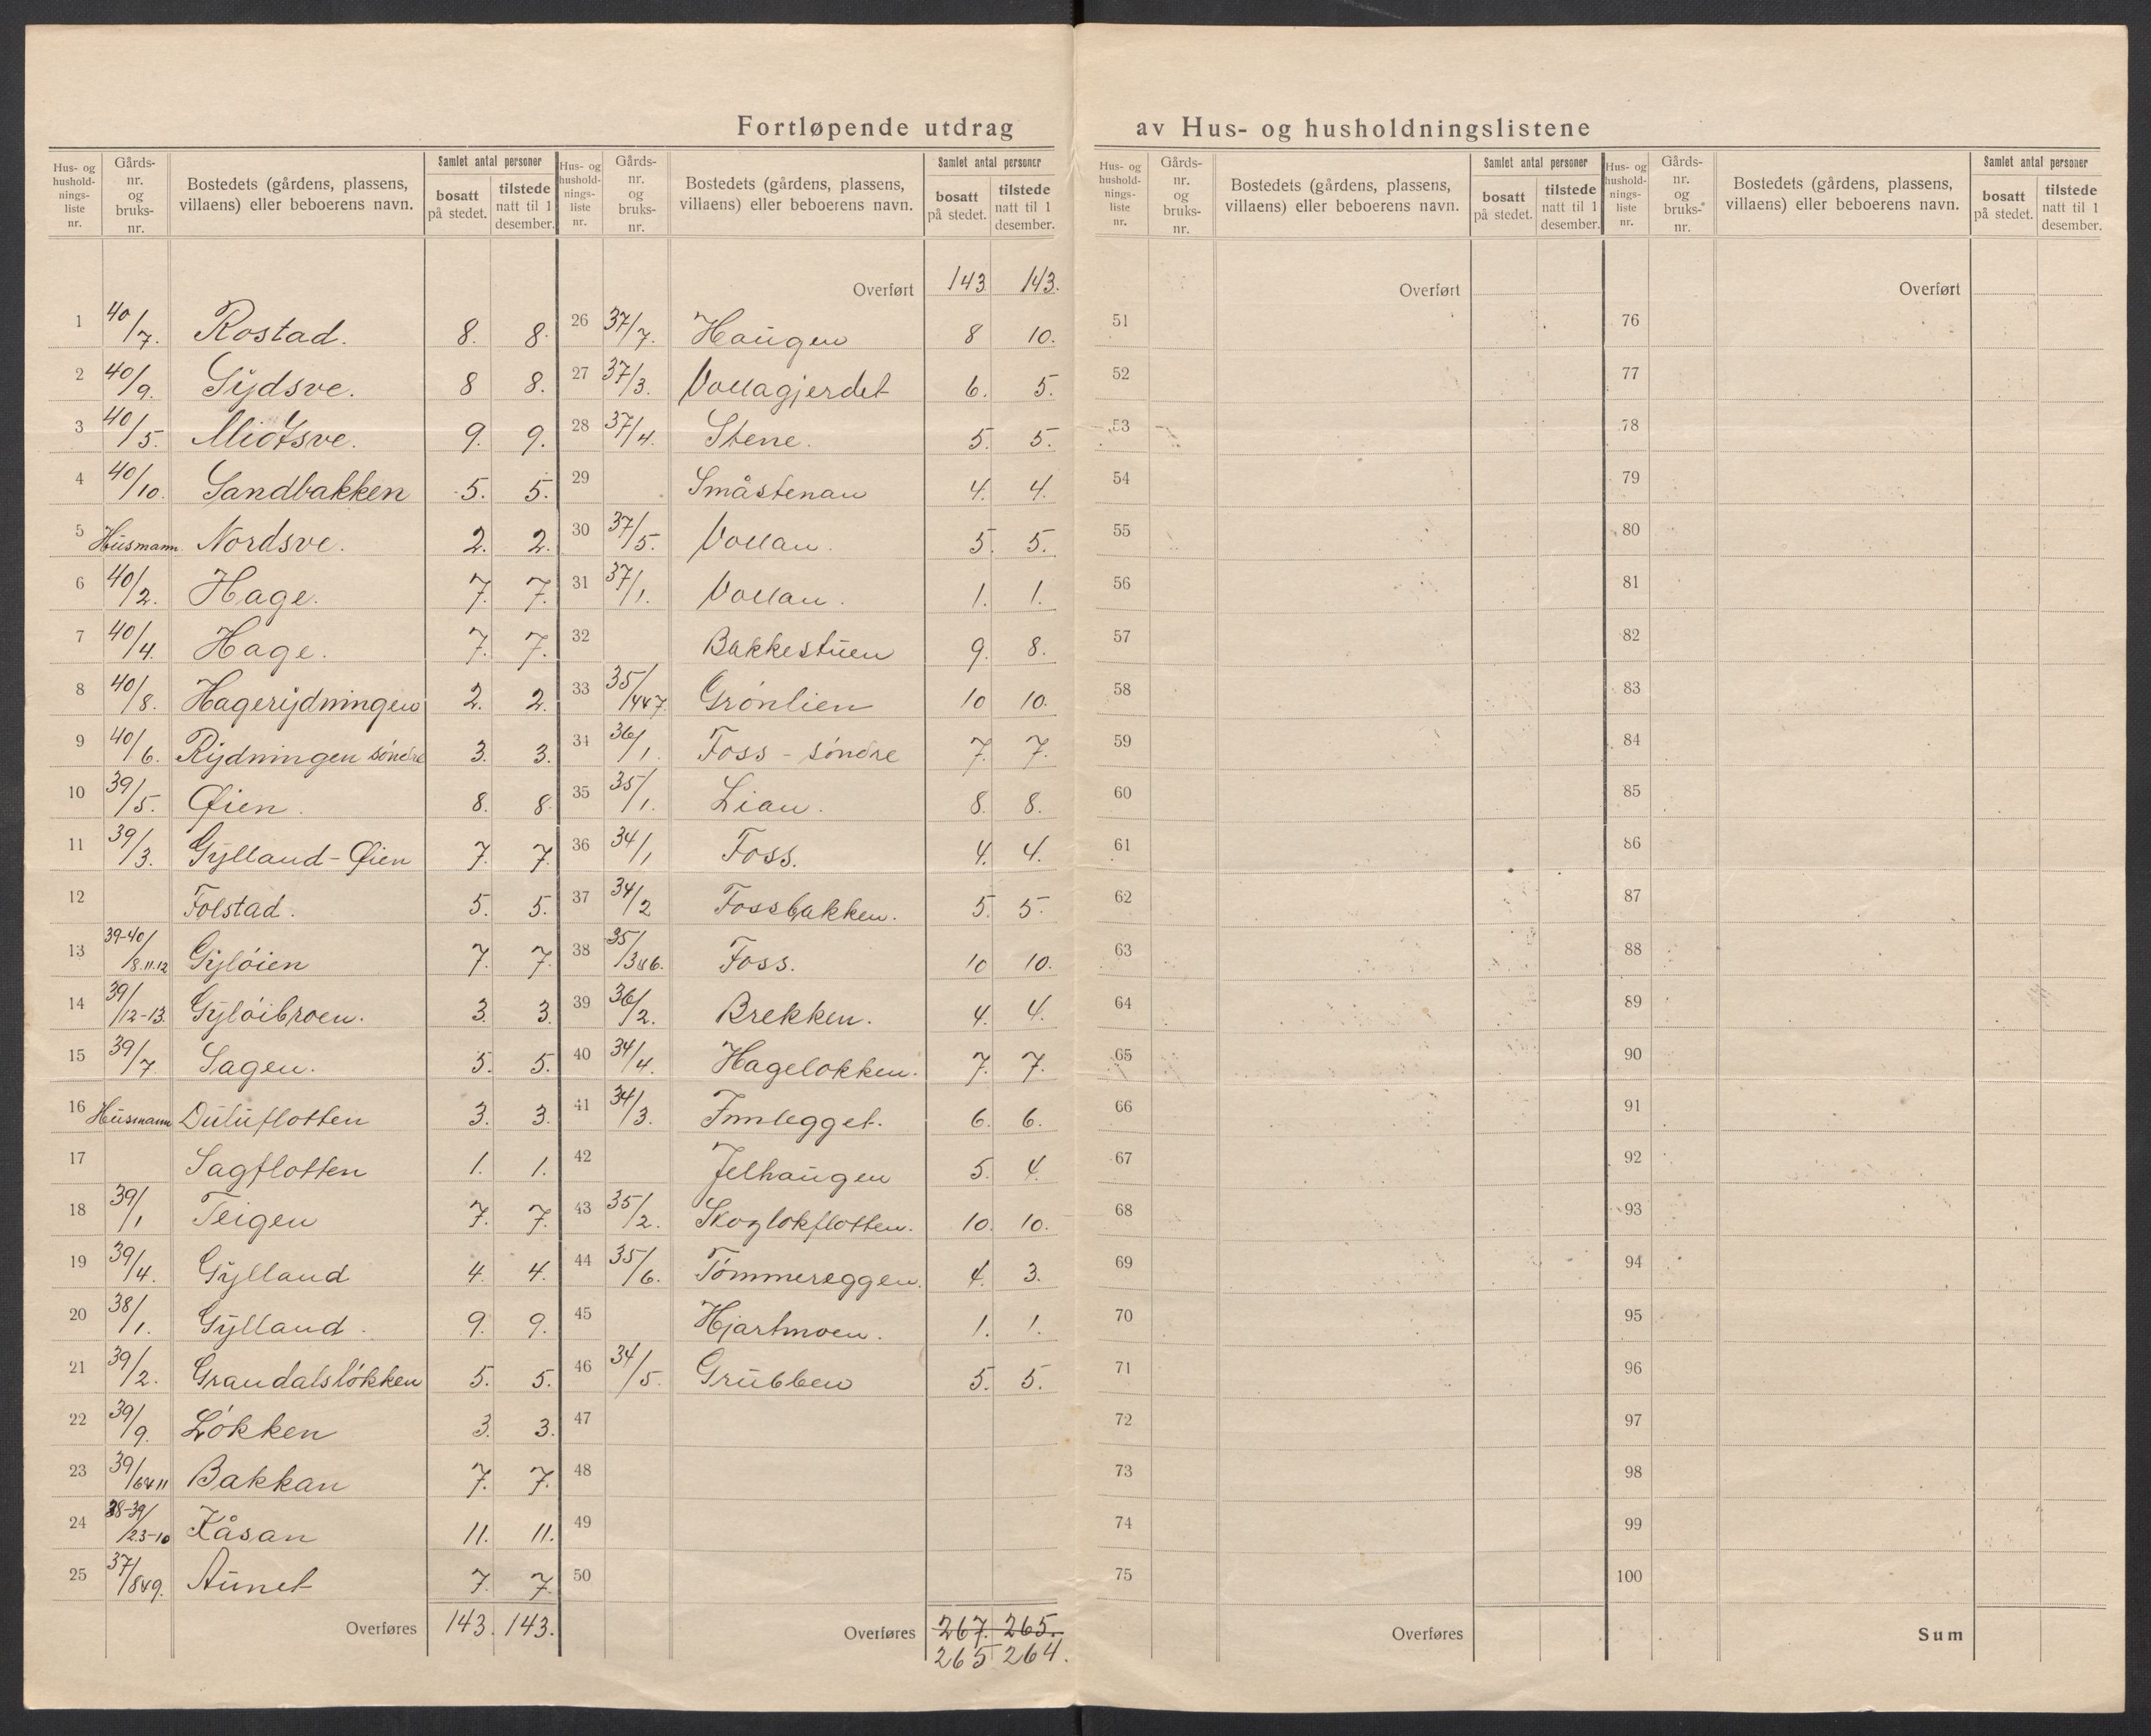 Fortløpende utdrag av Hus- og husholdningslistene
Hus- og husholdnings-liste nr. Gårds-nr. og bruks-nr. Bostedets (gårdens, plassens, villaens) eller beboerens navn. Samlet antal personer bosatt på stedet. tilstede natt til 1 desember.
1 40/7. Rostad. 8. 8.
2 40/9. Sÿdsve. 8 8.
3 40/5. Midtsve. 9. 9.
4 40/10. Sandbakken 5. 5.
5 Husmann Nordsve. 2. 2.
6 40/2. Hage. 7. 7.
7 40/4. Hage. 7. 7.
8 40/8. Hagerÿdningen 2. 2.
9 40/6. Rÿdningen söndre 3. 3.
10 39/5. Øien. 8. 8.
11 39/3. Gÿlland-Øien 7. 7.
12 Folstad. 5. 5.
13 39-40/8.11.12 Gÿlöien 7. 7.
14 39/12-13. Gÿlöibroen. 3. 3.
15 39/7 Sagen. 5. 5.
16 Husmann Duluflotten 3. 3.
17 Sagflotten 1. 1.
18 39/1 Teigen 7. 7.
19 39/4. Gÿlland 4. 4.
20 38/1. Gÿlland. 9. 9.
21 39/2. Grandalslökken 5. 5.
22 39/9. Lökken 3. 3.
23 39/6&11 Bakkan 7. 7.
24 38-39/2.3-10 Kåsan 11. 11.
25 37/8&9. Aunet 7. 7.
Overføres 143. 143.
Hus- og husholdnings-liste nr. Gårds-nr. og bruks-nr. Bostedets (gårdens, plassens, villaens) eller beboerens navn. Samlet antal personer bosatt på stedet. tilstede natt til 1 desember.
Overført 143 143.
26 37/7. Haugen 8 10.
27 37/3. Vollagjerdet 6. 5.
28 37/4. Stene. 5. 5.
29 Småstenan 4. 4.
30 37/5. Vollan. 5. 5.
31 37/1. Vollan. 1. 1.
32 Bakkestuen 9. 8.
33 35/4&7. Grönlien 10 10.
34 36/1. Foss - söndre 7. 7.
35 35/1. Lian. 8. 8.
36 34/1 Foss. 4. 4.
37 34/2 Fossbakken. 5. 5.
38 35/3&6. Foss. 10 10.
39 36/2. Brekken. 4. 4.
40 34/4. Hagelokken. 7. 7.
41 34/3. Innlegget. 6. 6.
42 Jelhaugen 5. 4.
43 35/2. Skoglokflotten. 10. 10.
44 35/6. Tömmereggen. 4. 3.
45 Hjartmoen. 1. 1.
46 34/5. Grubben 5. 5.
47
48
49
50
Overføres 267. 265.
265 264.
Hus- og husholdnings-liste nr. Gårds-nr. og bruks-nr. Bostedets (gårdens, plassens, villaens) eller beboerens navn. Samlet antal personer bosatt på stedet. tilstede natt til 1 desember.
Overført
51
52
53
54
55
56
57
58
59
60
61
62
63
64
65
66
67
68
69
70
71
72
73
74
75
Overføres
Hus- og husholdnings-liste nr. Gårds-nr. og bruks-nr. Bostedets (gårdens, plassens, villaens) eller beboerens navn. Samlet antal personer bosatt på stedet. tilstede natt til 1 desember.
Overført
76
77
78
79
80
81
82
83
84
85
86
87
88
89
90
91
92
93
94
95
96
97
98
99
100
Sum